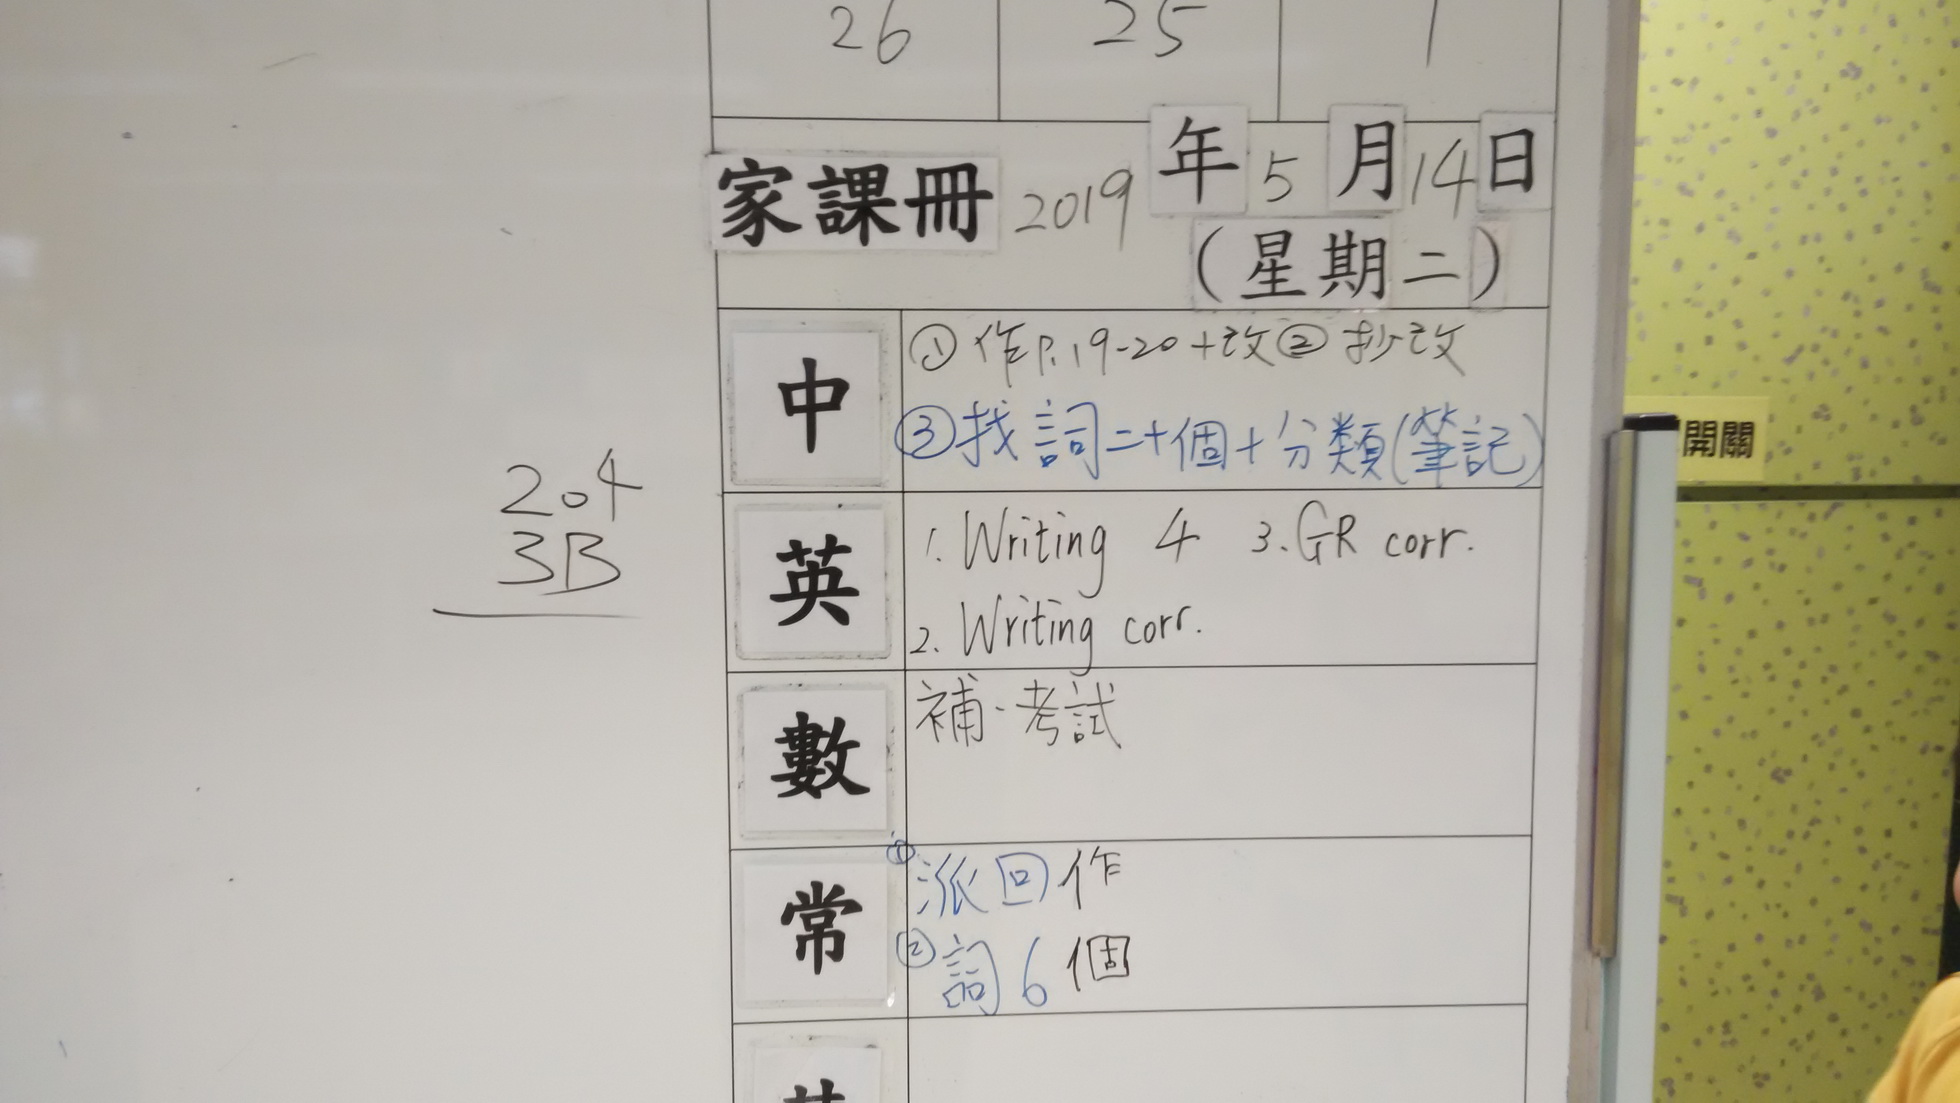 26 25 1
家課冊 2019 年 5 月 14 日
(星期二)
中 ① 作P.19-20+改 ② 抄改
③ 找詞二十個+分類(筆記)
204
3B
英 1. Writing 4 3. GR corr.
2. Writing corr.
數 補·考試
常 ① 派回作
② 詞6個
開關